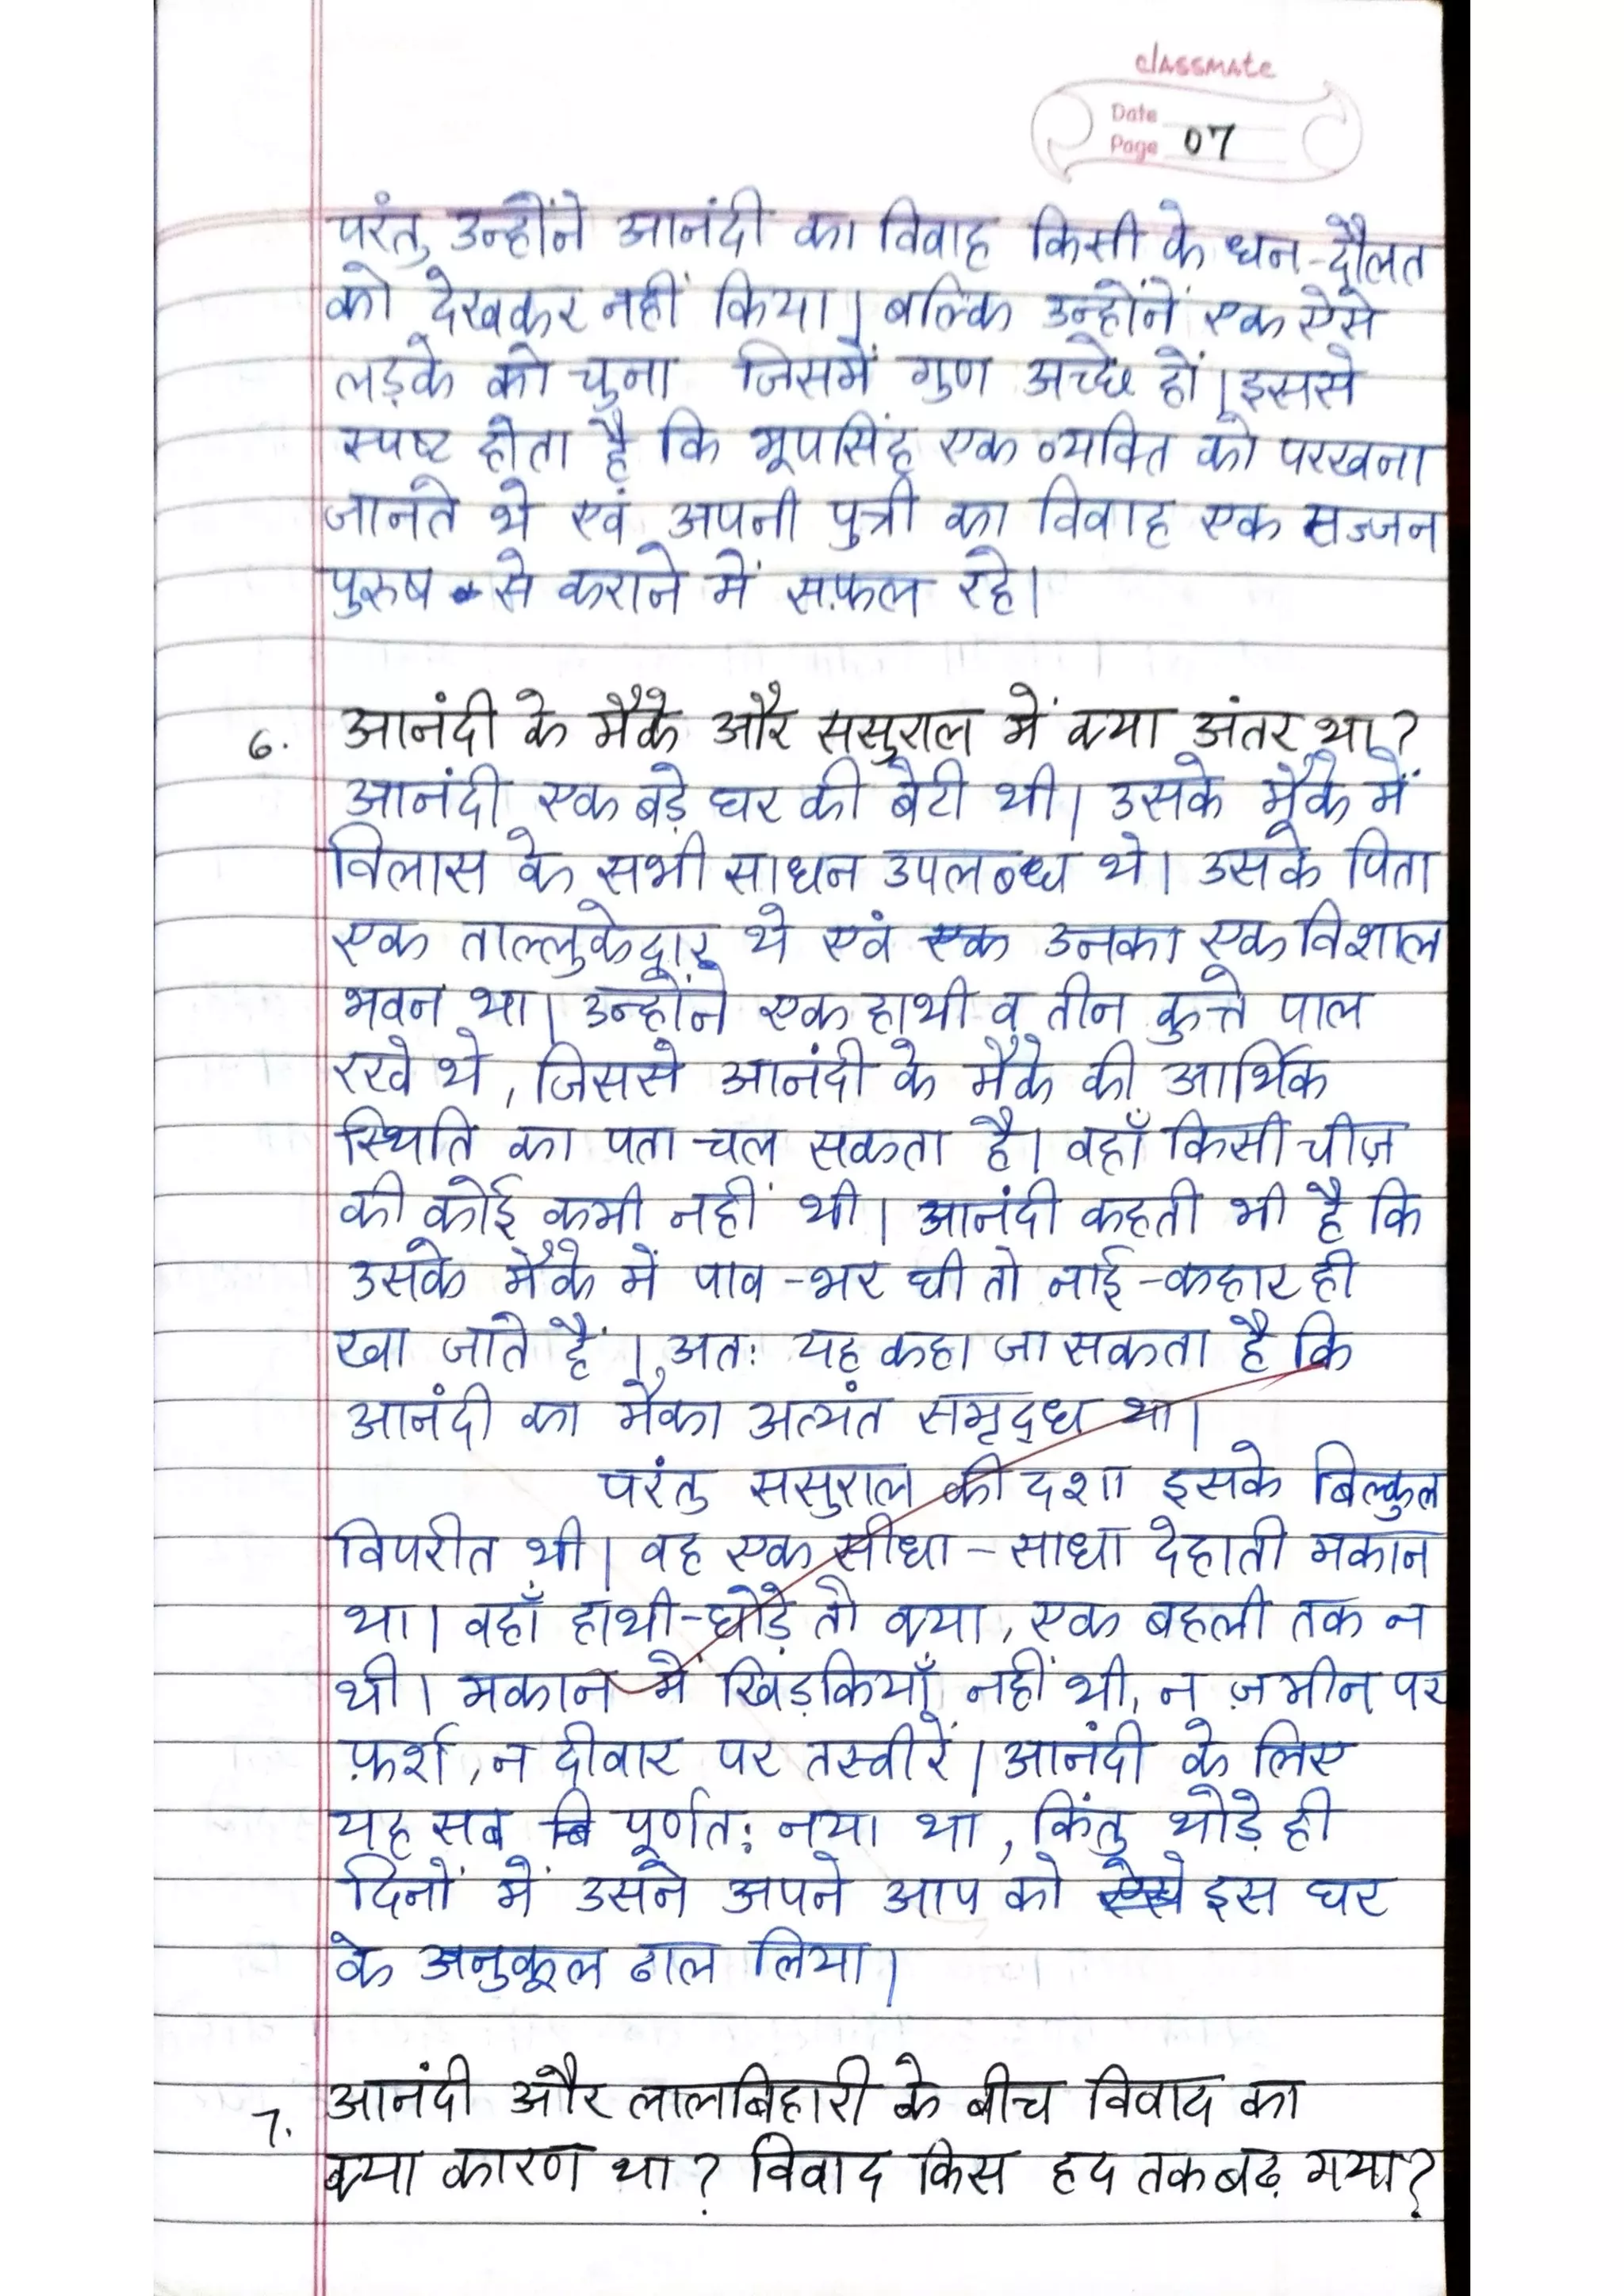 classmate
Date
Page 07
परंतु उन्होंने आनंदी का विवाह किसी के धन-दौलत
को देखकर नहीं किया। बल्कि उन्होंनें एक ऐसे
लड़के को चुना जिसमें गुण अच्छे हों। इससे
स्पष्ट होता है कि भूपसिंह एक व्यक्ति को परखना
जानते थे एवं अपनी पुत्री का विवाह एक सज्जन
पुरुष से कराने में सफ़ल रहे।
6. आनंदी के मैके और ससुराल में क्या अंतर था?
आनंदी एक बड़े घर की बेटी थी। उसके मैके में
विलास के सभी साधन उपलब्ध थे। उसके पिता
एक ताल्लुकेदार थे एवं एक उनका एक विशाल
भवन था। उन्होंने एक हाथी व तीन कुत्ते पाल
रखे थे, जिससे आनंदी के मैके की आर्थिक
स्थिति का पता चल सकता है। वहाँ किसी चीज़
की कोई कमी नहीं थी। आनंदी कहती भी है कि
उसके मैके में पाव-भर घी तो नाई-कहार ही
खा जाते हैं। अतः यह कहा जा सकता है कि
आनंदी का मैका अत्यंत समृद्ध था।
परंतु ससुराल की दशा इसके बिल्कुल
विपरीत थी। वह एक सीधा-साधा देहाती मकान
था। वहाँ हाथी-घोड़े तो क्या, एक बहली तक न
थी। मकान में खिड़कियाँ नहीं थी, न ज़मीन पर
फ़र्श, न दीवार पर तस्वीरें। आनंदी के लिए
यह सब पूर्णतः नया था, किंतु थोड़े ही
दिनों में उसने अपने आप को इस घर
के अनुकूल ढाल लिया।
7. आनंदी और लालबिहारी के बीच विवाद का
क्या कारण था? विवाद किस हद तक बढ़ गया?